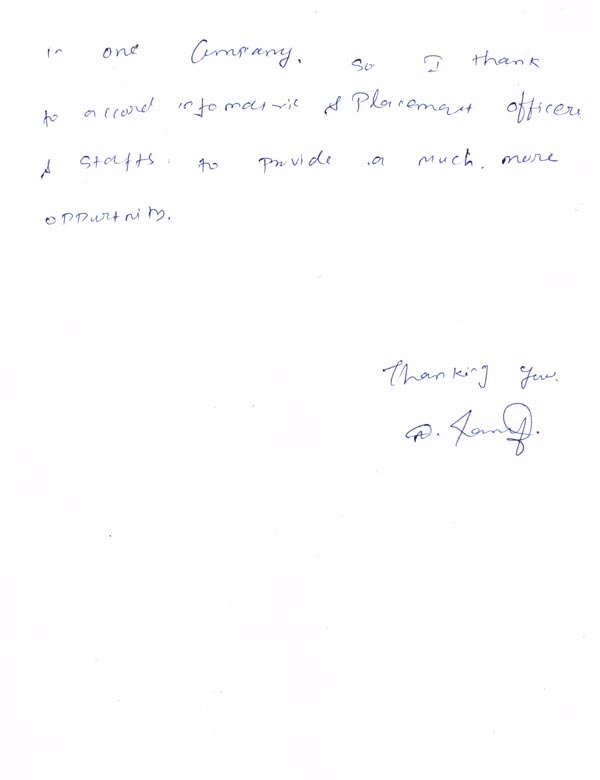 in one Company. so I thank
to accord infomatric & Placement officers
& staffs. to provide a much more
oppurtnity.
Thanking you.